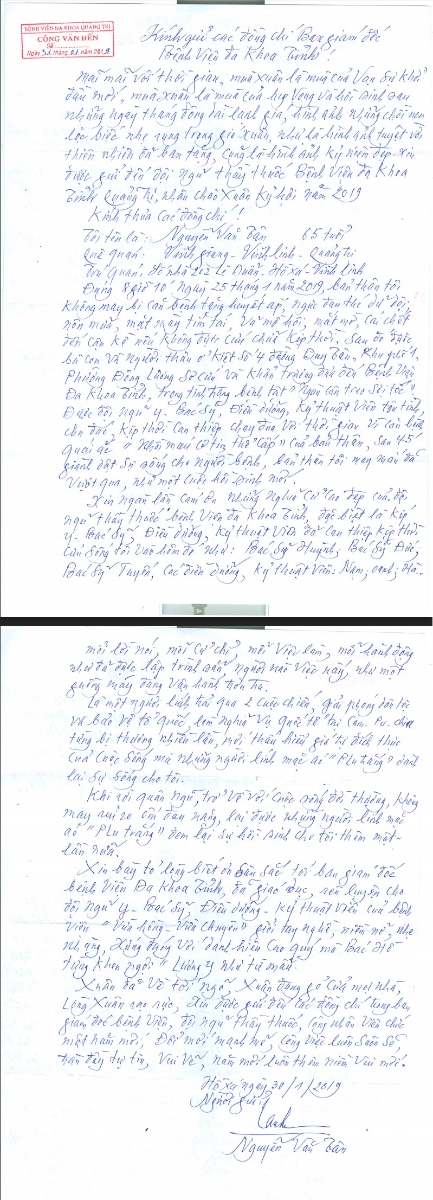 BỆNH VIỆN ĐA KHOA QUẢNG TRỊ
CÔNG VĂN ĐẾN
Số
Ngày 31 tháng 01 năm 2019
Kính gửi các đồng chí Ban giám đốc
Bệnh Viện đa Khoa Tỉnh!
Mãi mãi với thời gian, mùa xuân là mùa của Vạn sự khởi
đầu mới, mùa xuân là mùa của hy Vọng và hồi sinh sau
những ngày tháng đông dài lạnh giá, hình ảnh những chồi non
lộc biếc nhẹ rung trong gió Xuân, như là hình ảnh tuyệt vời
thiên nhiên đã ban tặng, cũng là hình ảnh kỷ niệm đẹp xin
được gửi đến đội ngũ thầy thuốc Bệnh Viện đa Khoa
Tỉnh Quảng trị, nhân chào Xuân Kỷ hợi năm 2019
Kính thưa Các đồng chí!
Tôi tên là: Nguyễn Văn Tân 65 tuổi
Quê quán: Vĩnh giang - Vĩnh linh - Quảng trị
Trú quán: Số nhà 202 Lê Duẩn - Hồ xá - Vĩnh linh
Đúng 8 giờ 10' ngày 25 tháng 1 năm 2019, bản thân tôi
không may bị căn bệnh tăng huyết áp, ngực đau thắt dữ dội,
nôn mửa, mặt mày tím tái, vã mồ hôi, mắt mờ, cái chết
đến cận kề nếu không được cứu chữa kịp thời, sau đó được
bà con và người thân ở Kiệt số 4 đường Quy Bân, Khu phố 1,
Phường Đông Lương sơ cứu và khẩn trương đưa đến Bệnh Viện
Đa Khoa Tỉnh, trong tình trạng bệnh tật "ngàn cân treo sợi tóc"
Được đội ngũ y - Bác Sỹ, Điều dưỡng, Kỹ thuật Viên tận tình,
chu đáo, kịp thời Can thiệp chạy đua với thời gian vì căn bệnh
quái ác "Nhồi máu cơ tim thể cấp" của bản thân, sau 45'
giành dật sự sống cho người bệnh, bản thân tôi may mắn đã
vượt qua, như một cuộc hồi sinh mới.
Xin ngàn lần cảm ơn những nghĩa cử cao đẹp của đội
ngũ thầy thuốc bệnh Viện đa Khoa Tỉnh, đặc biệt là kíp
y - Bác Sỹ, Điều dưỡng, Kỹ thuật Viên đã Can thiệp kịp thời
cứu sống tôi vào hôm đó như: Bác Sỹ Huỳnh; Bác Sỹ Đức,
Bác Sỹ Tuyến, Các điều dưỡng, kỹ thuật viên: Nam, oanh; Hà..
mỗi lời nói, mỗi cử chỉ, mỗi Việc làm, mỗi hành động
như đã được lập trình sẵn người nào việc nấy, như một
guồng máy đang Vận hành trơn tru.
Là một người lính trải qua 2 cuộc chiến, giải phóng dân tộc
và bảo vệ tổ quốc, làm nghĩa vụ quốc tế tại Cam. Pu. chia
từng bị thương nhiều lần, mới thấu hiểu giá trị đích thực
của cuộc sống mà những người lính mặc áo "BLu trắng" dành
lại sự sống cho tôi.
Khi rời quân ngũ, trở về với cuộc sống đời thường, không
may rủi ro ốm đau nặng, lại được những người lính mặc
áo "BLu trắng" đem lại sự hồi sinh cho tôi thêm một
lần nữa.
Xin bày tỏ lòng biết ơn sâu sắc tới ban giám đốc
bệnh Viện Đa Khoa tỉnh, đã giáo dục, rèn luyện cho
đội ngũ y - Bác Sỹ, Điều dưỡng - kỹ thuật Viên của bệnh
Viện "Vừa hồng - Vừa chuyên" giỏi tay nghề, niềm nở, nhẹ
nhàng, xứng đáng với danh hiệu cao quý mà Bác Hồ
từng khen ngợi "Lương y như từ mẫu.
Xuân đã về tới ngõ, Xuân đang gõ cửa mọi nhà,
lòng Xuân rạo rực, Xin được gửi đến các đồng chí trong ban
giám đốc bệnh Viện, đội ngũ thầy thuốc, Công nhân Viên chức
một năm mới, Đổi mới mạnh mẽ, công việc luôn suôn sẻ
tràn đầy tự tin, vui vẻ, năm mới luôn thêm niềm vui mới.
Hồ xá ngày 30/1/2019
Người gửi
Nguyễn Văn Tân